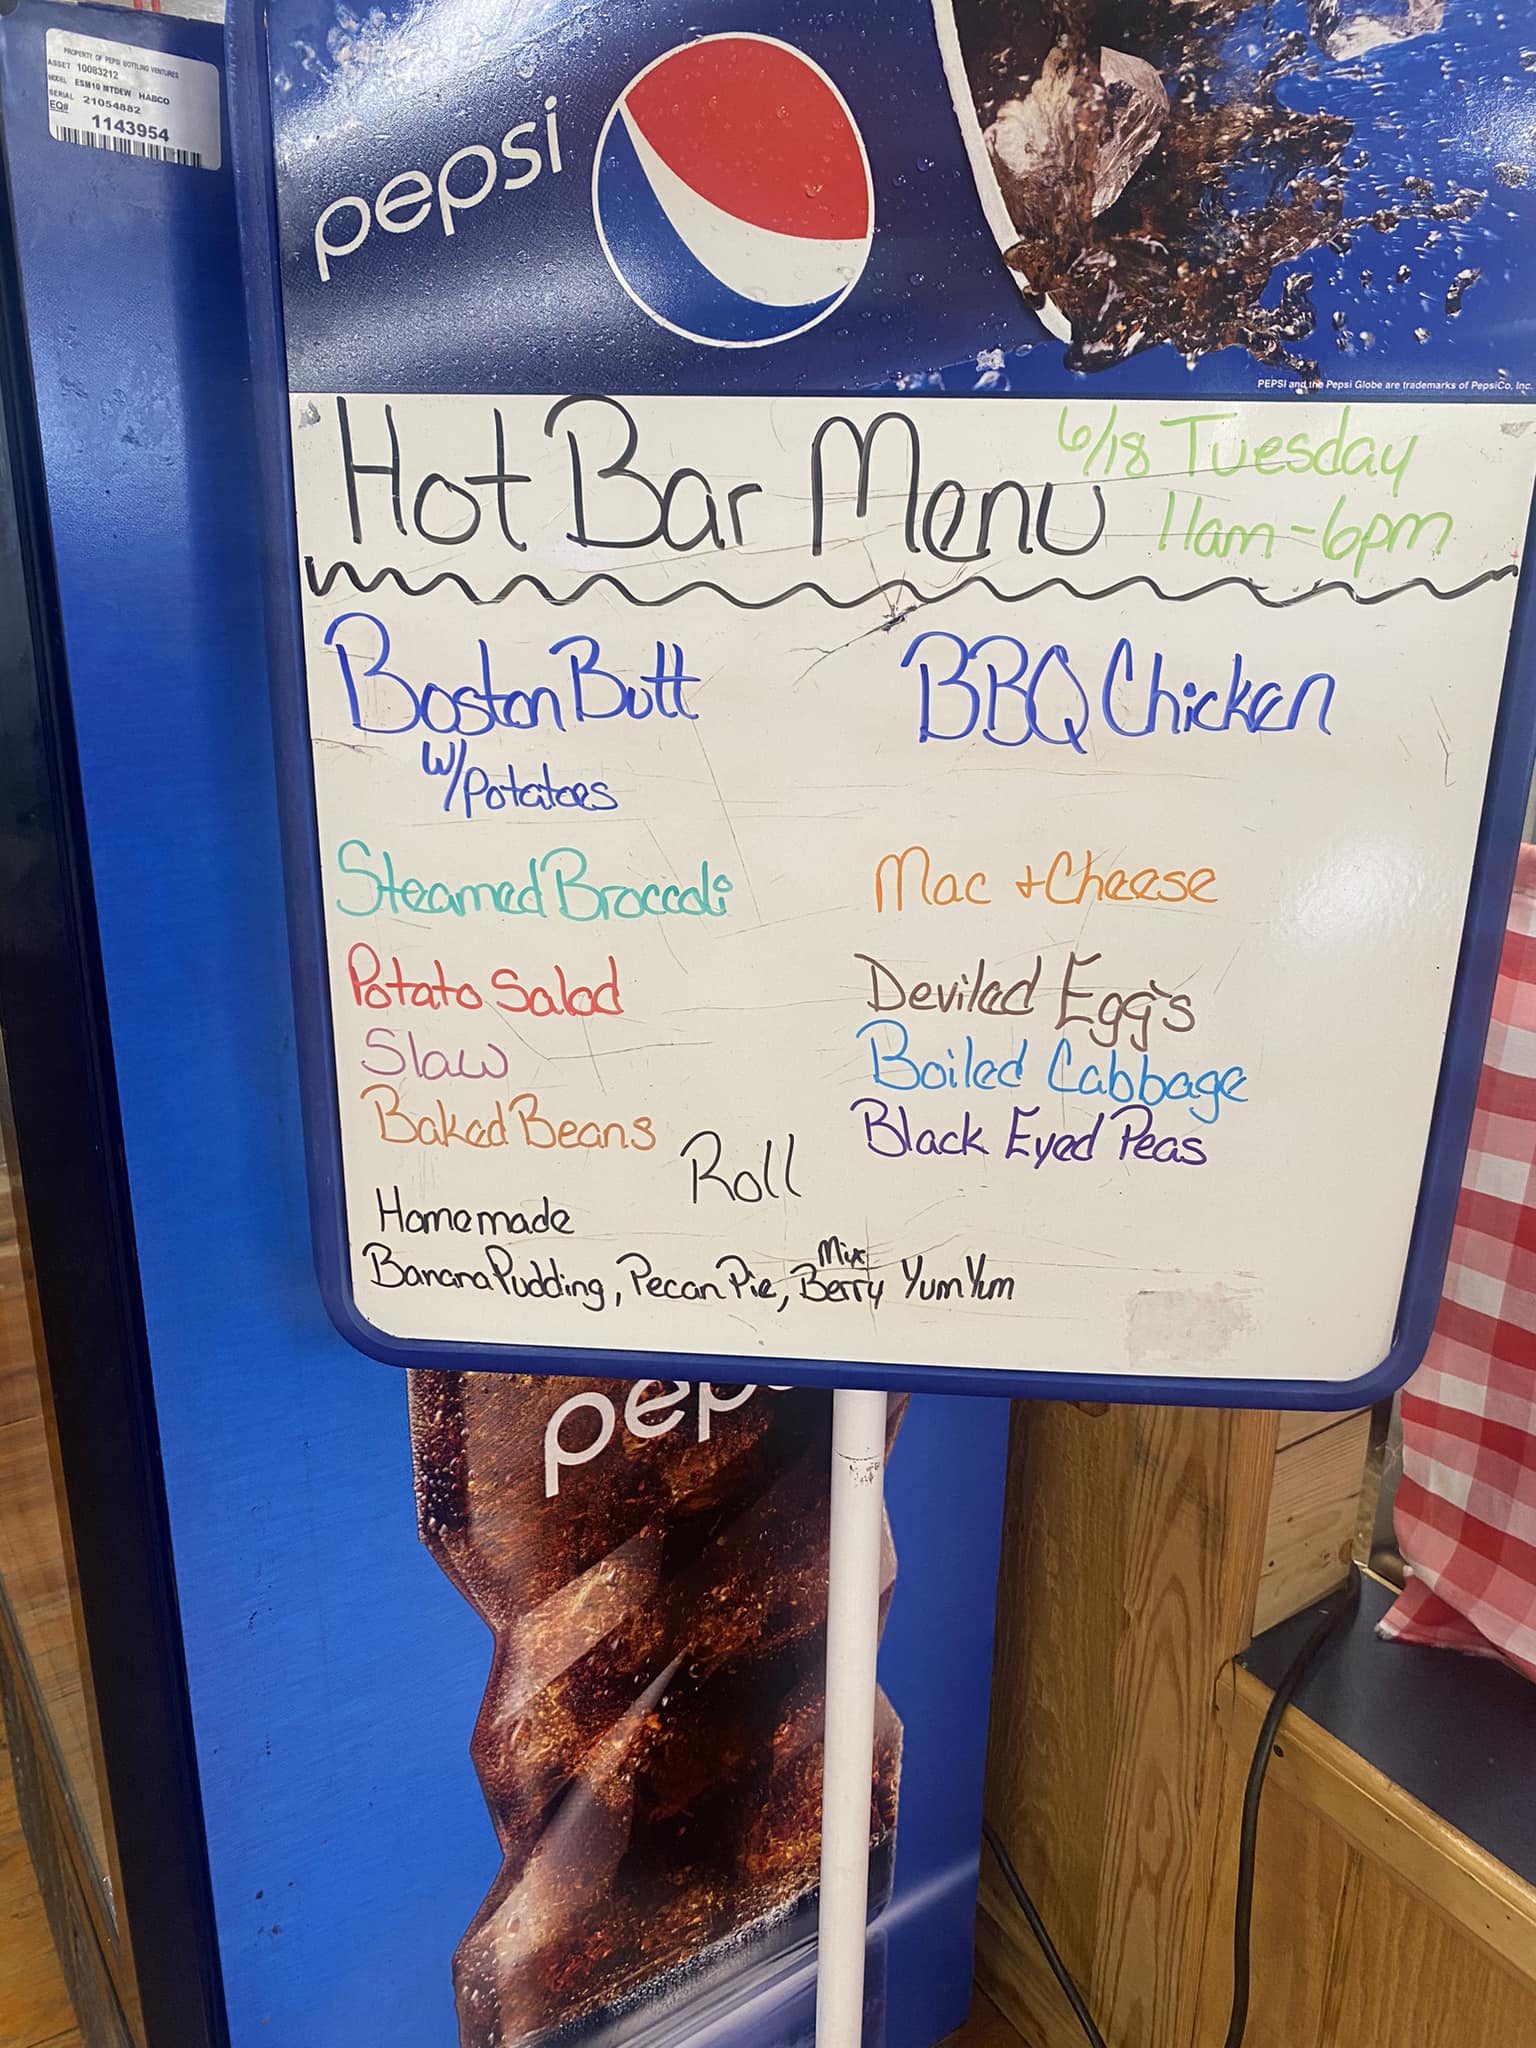 PROPERTY OF PEPSI BOTTLING VENTURES
ASSET 10083212
MODEL ESM10 MTDEW HABCO
SERIAL 21054882
EQ# 1143954
pepsi
PEPSI and the Pepsi Globe are trademarks of PepsiCo, Inc.
Hot Bar Menu
6/18 Tuesday
11am-6pm
Boston Butt
w/Potatoes
BBQ Chicken
Steamed Broccoli
Mac + Cheese
Potato Salad
Deviled Egg's
Slaw
Boiled Cabbage
Baked Beans
Black Eyed Peas
Roll
Homemade
Banana Pudding, Pecan Pie, Mix Berry Yum Yum
peps